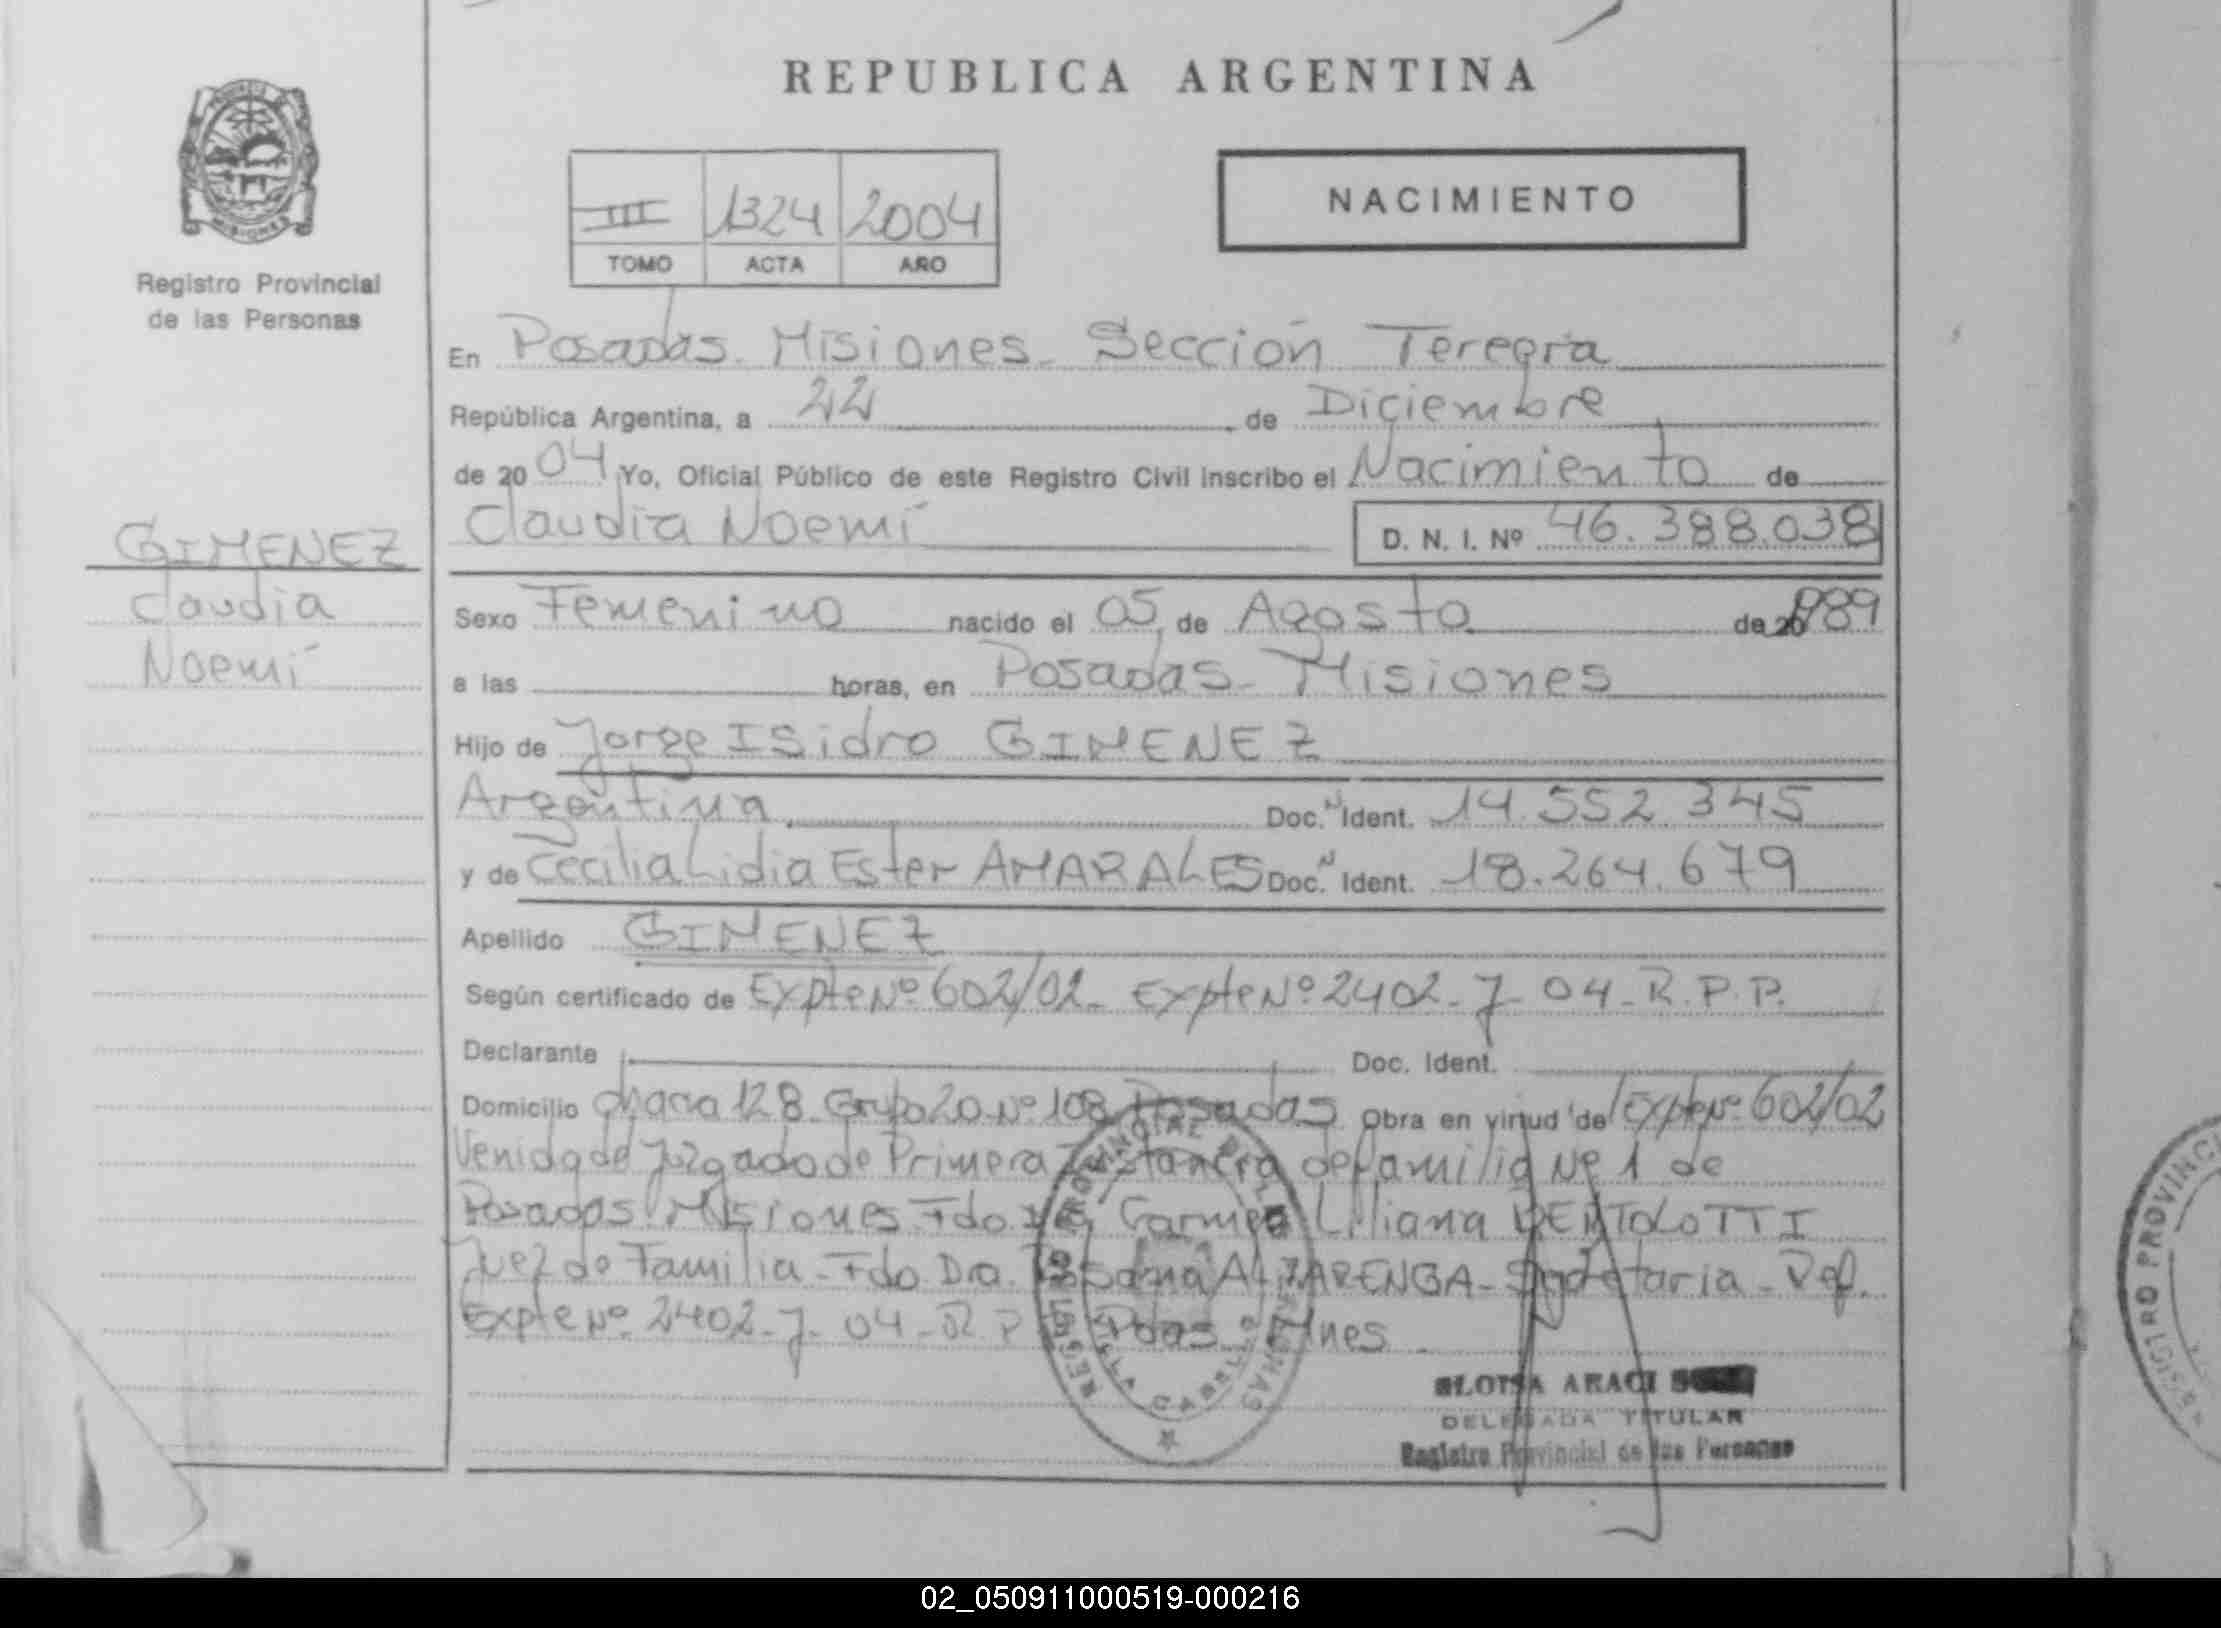 REPUBLICA ARGENTINA
III 1324 2004
TOMO ACTA AÑO
NACIMIENTO
Registro Provincial
de las Personas
GIMENEZ
Claudia
Noemí
En Posadas. Misiones. Sección Tercera
República Argentina, a 22 de Diciembre
de 2004 Yo, Oficial Público de este Registro Civil inscribo el Nacimiento de
Claudia Noemí D. N. I. Nº 46.388.038
Sexo Femenino nacido el 05 de Agosto de 1989
a las horas, en Posadas - Misiones
Hijo de Jorge Isidro GIMENEZ
Argentina Doc. N Ident. 14.552.345
y de Cecilia Lidia Ester AMARALES Doc. N Ident. 18.264.679
Apellido GIMENEZ
Según certificado de Expte Nº 602/02 - Expte Nº 2402 - J - 04 - R.P.P.
Declarante Doc. Ident.
Domicilio chacra 128 Grupo 20 Nº 108 Posadas Obra en virtud de Expte Nº 602/02
Venida de Juzgado de Primera Instancia de Familia Nº 1 de
Posadas Misiones Fdo Carmen Liliana BERTOLOTTI
Juez de Familia - Fdo Dra. Rosana ALVARENGA - Secretaria - Ref.
Expte Nº 2402 - J - 04 - R.P Pdas. Mnes.
REGISTRO PROVINCIAL DE LAS PERSONAS
VILLA CABELLO
ELOISA ARACI
DELEGADA TITULAR
Registro Provincial de las Personas
REGISTRO PROVINCI
02_050911000519-000216